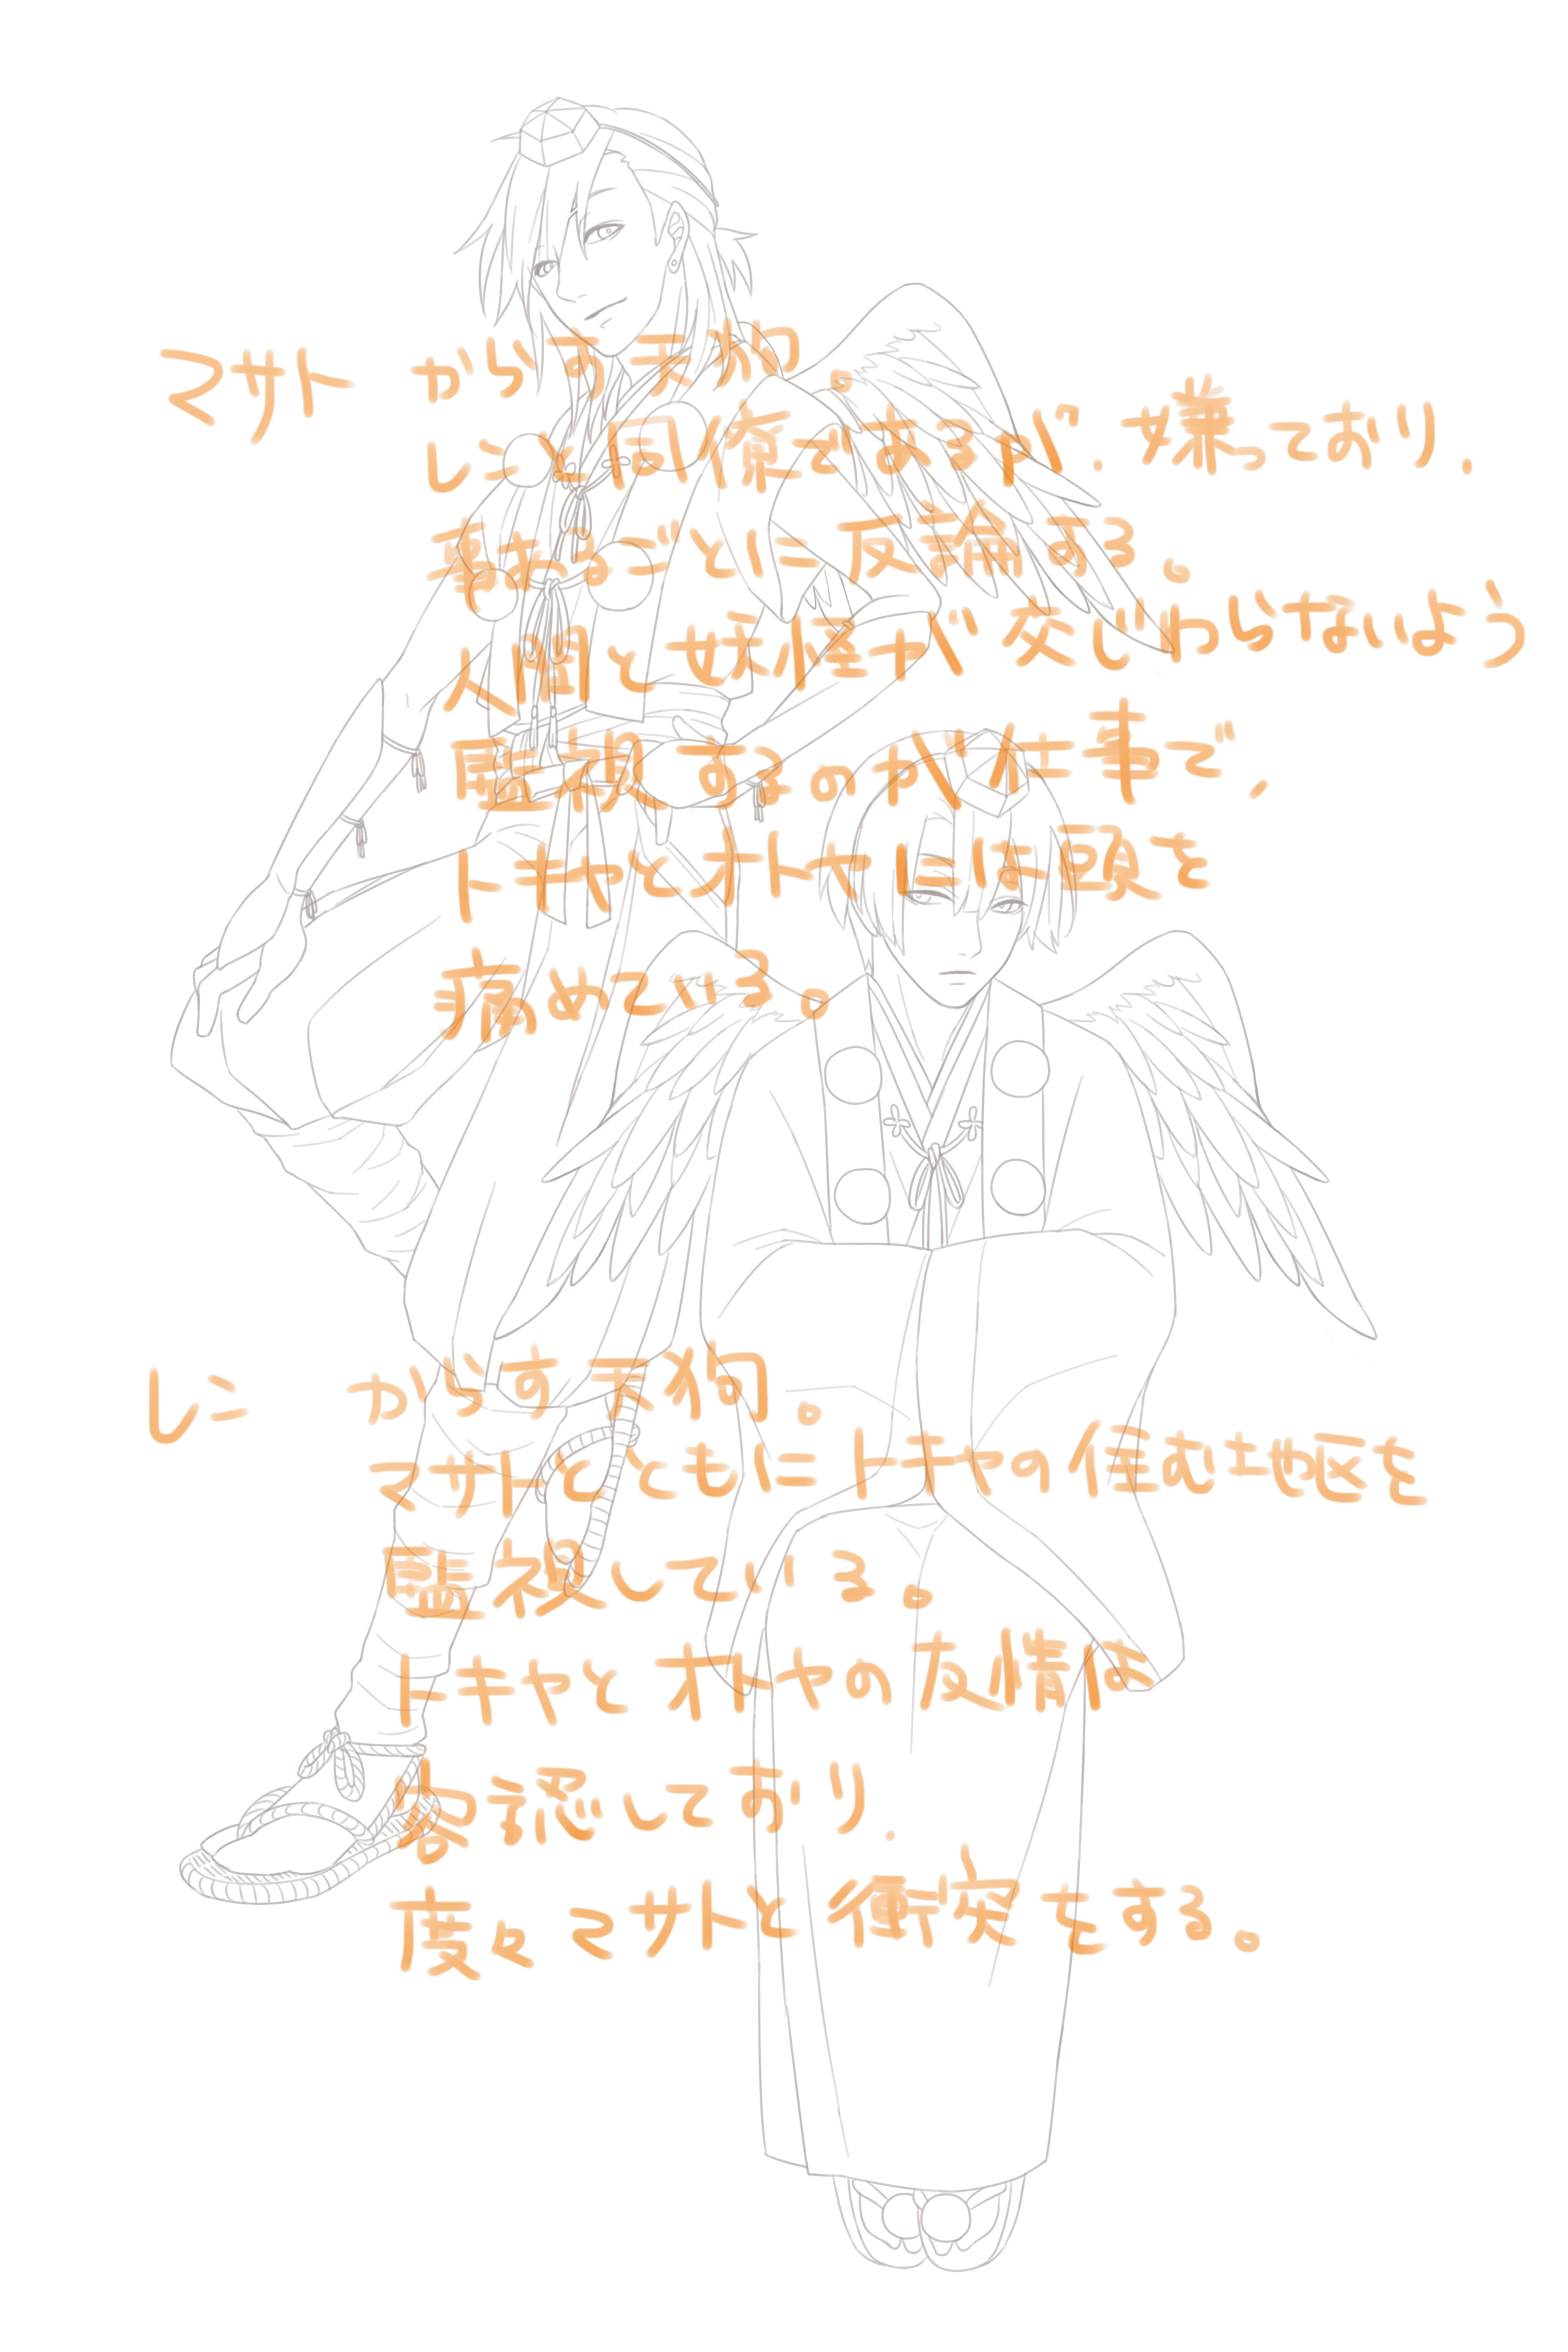 マサト からす天狗。
レンとは同僚であるが、嫌っており、
事あるごとに反論する。
人間と妖怪が交じわらないよう
監視するのが仕事で、
トキヤとオトヤには頭を
痛めている。
レン からす天狗。
マサトとともにトキヤの住む地区を
監視している。
トキヤとオトヤの友情は
容認しており、
度々マサトと衝突をする。